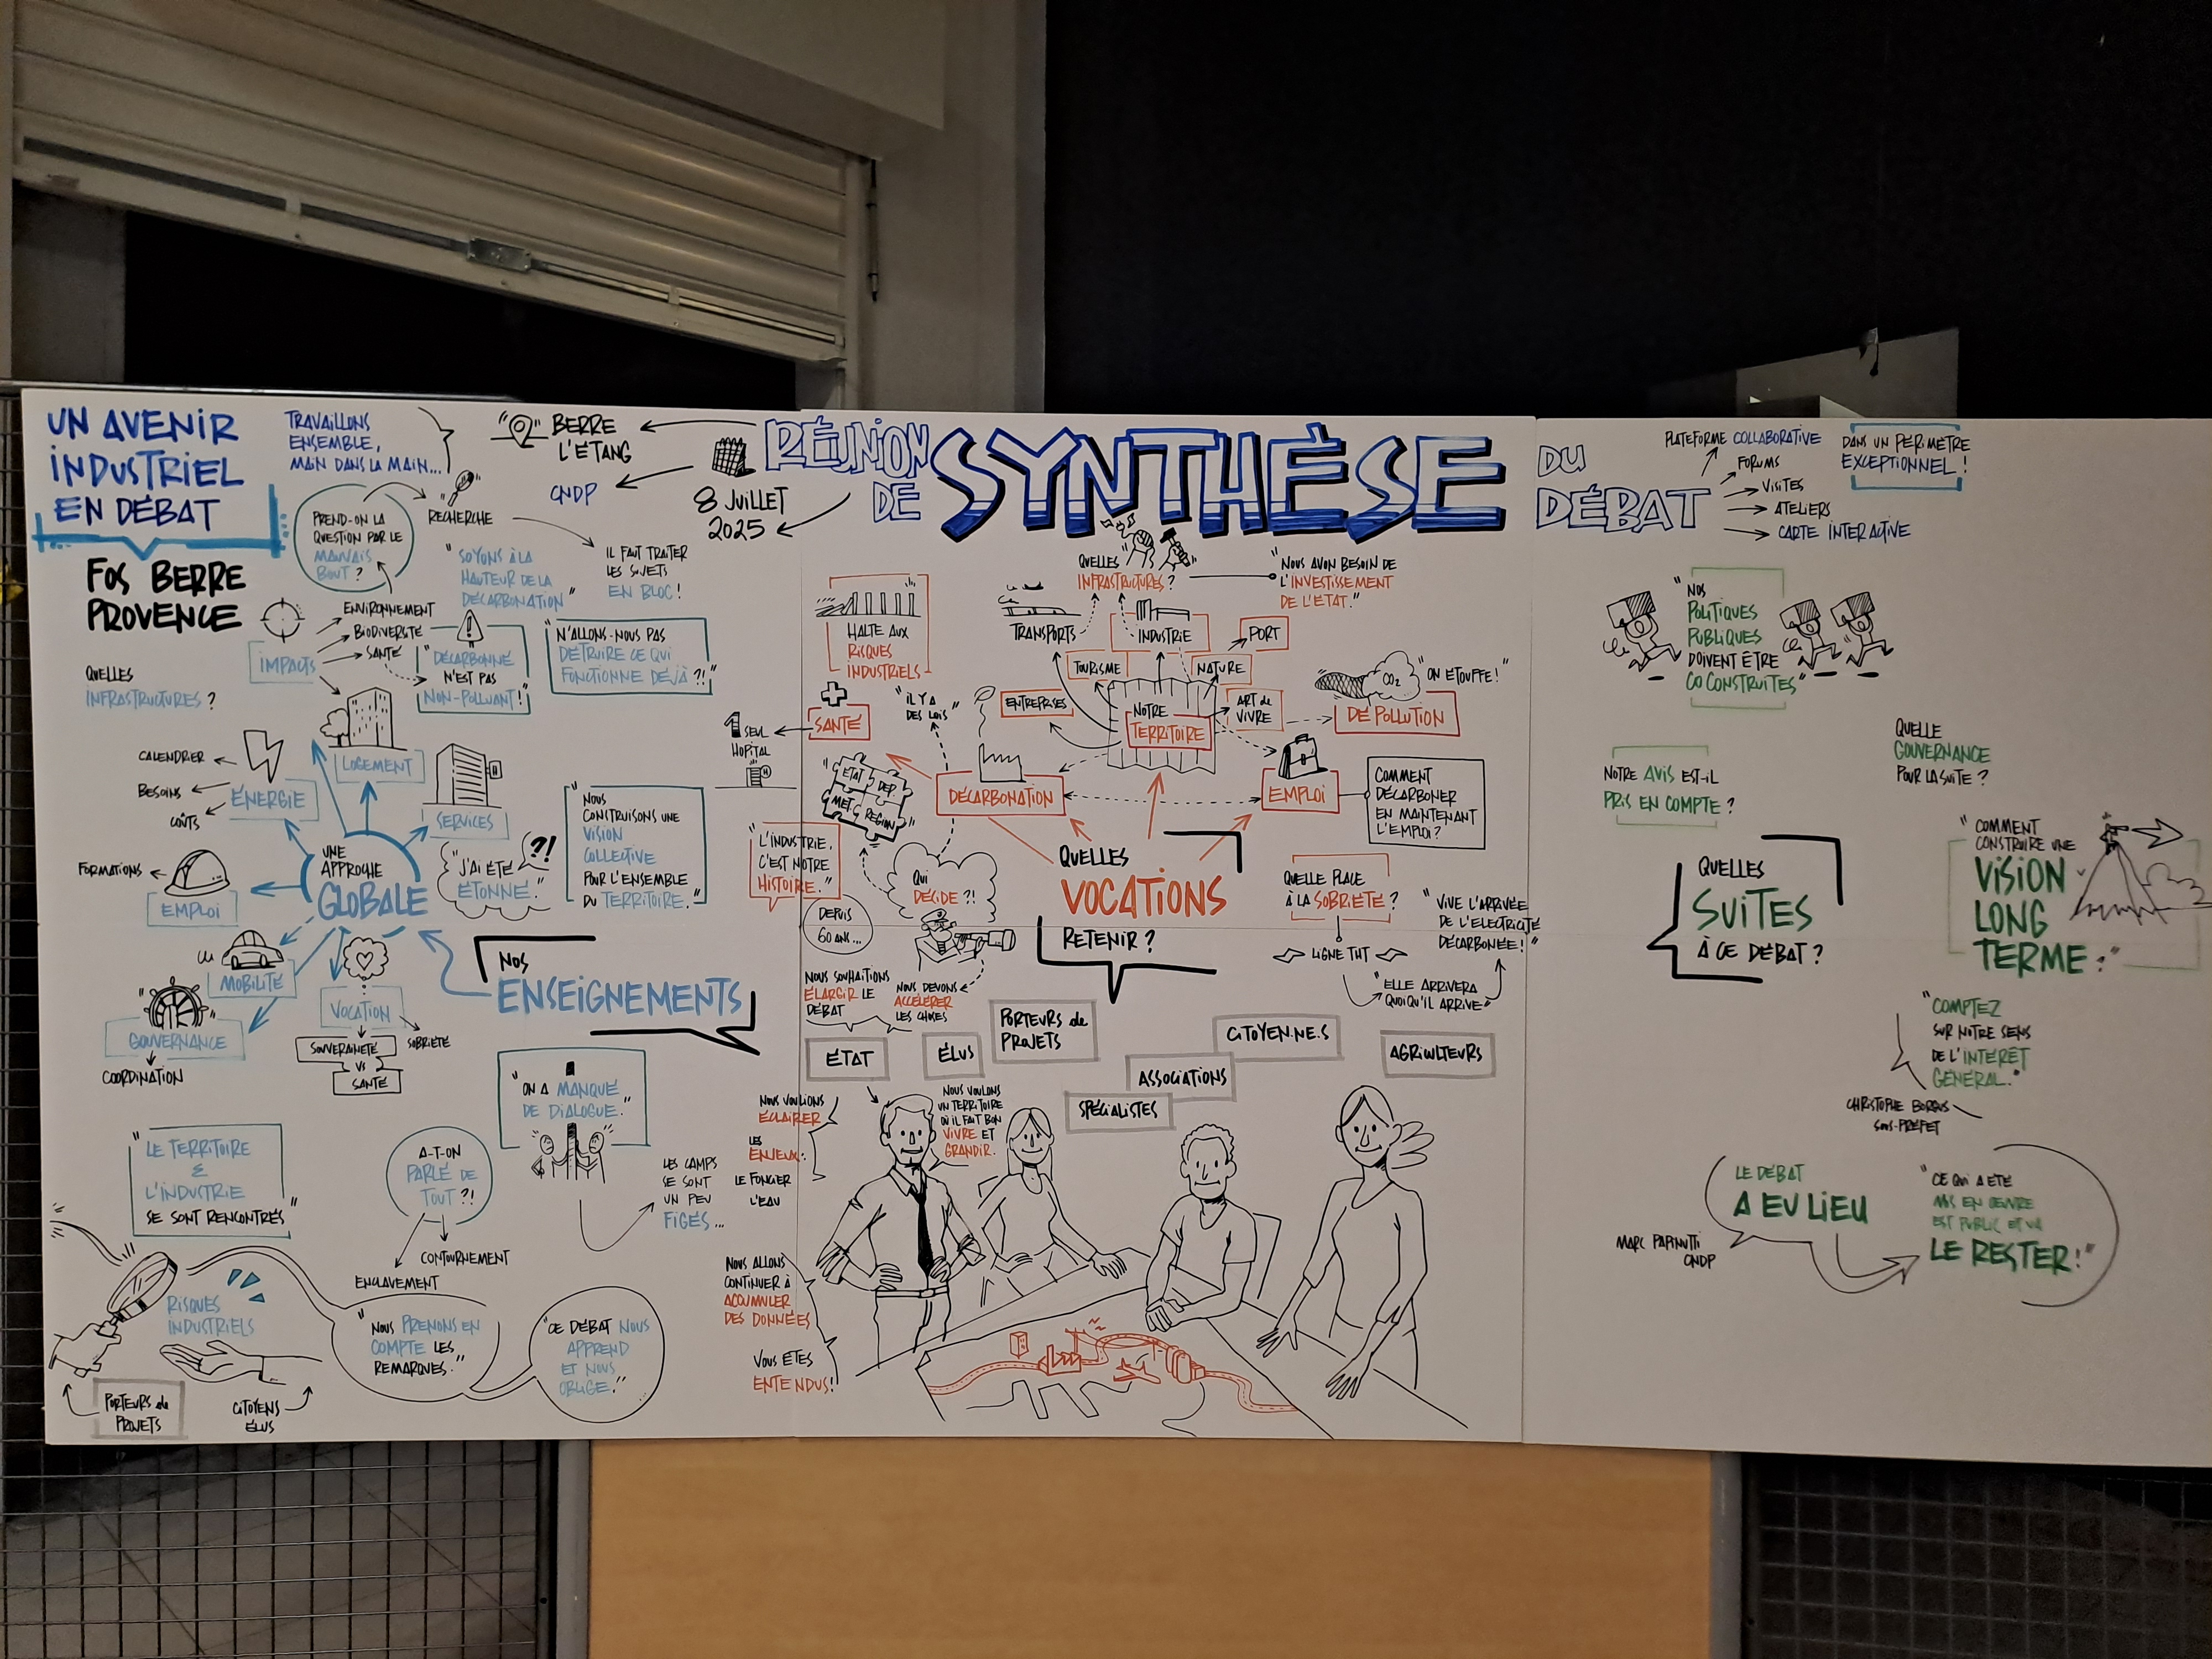 UN AVENIR
INDUSTRIEL
EN DÉBAT
FOS BERRE
PROVENCE
TRAVAILLONS
ENSEMBLE,
MAIN DANS LA MAIN...
BERRE
L'ÉTANG
CNDP
8 JUILLET
2025
RÉUNION
DE
SYNTHÈSE
DU
DÉBAT
PLATEFORME COLLABORATIVE
FORUMS
VISITES
ATELIERS
CARTE INTERACTIVE
DANS UN PÉRIMÈTRE
EXCEPTIONNEL !
PREND-ON LA
QUESTION PAR LE
MAUVAIS
BOUT ?
RECHERCHE
"SOYONS À LA
HAUTEUR DE LA
DÉCARBONATION"
IL FAUT TRAITER
LES SUJETS
EN BLOC !
IMPACTS
ENVIRONNEMENT
BIODIVERSITÉ
SANTÉ
"DÉCARBONÉ
N'EST PAS
NON-POLLUANT !"
"N'ALLONS-NOUS PAS
DÉTRUIRE CE QUI
FONCTIONNE DÉJÀ ?!"
QUELLES
INFRASTRUCTURES ?
LOGEMENT
CALENDRIER
BESOINS
COÛTS
ÉNERGIE
SERVICES
UNE
APPROCHE
GLOBALE
"J'AI ÉTÉ
ÉTONNÉ."
?!
"NOUS
CONSTRUISONS UNE
VISION
COLLECTIVE
POUR L'ENSEMBLE
DU TERRITOIRE."
FORMATIONS
EMPLOI
MOBILITÉ
GOUVERNANCE
COORDINATION
VOCATION
SOUVERAINETÉ
VS
SANTÉ
SOBRIÉTÉ
NOS
ENSEIGNEMENTS
"ON A MANQUÉ
DE DIALOGUE."
LES CAMPS
SE SONT
UN PEU
FIGÉS...
"LE TERRITOIRE
&
L'INDUSTRIE
SE SONT RENCONTRÉS"
A-T-ON
PARLÉ DE
TOUT ?!
CONTOURNEMENT
ENCLAVEMENT
RISQUES
INDUSTRIELS
PORTEURS de
PROJETS
CITOYENS
ÉLUS
"NOUS PRENONS EN
COMPTE LES
REMARQUES."
"CE DÉBAT NOUS
APPREND
ET NOUS
OBLIGE."
HALTE AUX
RISQUES
INDUSTRIELS
QUELLES
INFRASTRUCTURES ?
"NOUS AVON BESOIN DE
L'INVESTISSEMENT
DE L'ÉTAT."
TRANSPORTS
INDUSTRIE
PORT
TOURISME
NATURE
ENTREPRISES
NOTRE
TERRITOIRE
ART de
VIVRE
CO2
"ON ÉTOUFFE !"
DÉPOLLUTION
1 SEUL
HOPITAL
H
SANTÉ
"IL Y A
DES LOIS"
ÉTAT
DÉP.
MÉT.
RÉGION
DÉCARBONATION
EMPLOI
COMMENT
DÉCARBONER
EN MAINTENANT
L'EMPLOI ?
"L'INDUSTRIE,
C'EST NOTRE
HISTOIRE."
DEPUIS
60 ANS...
QUI
DÉCIDE ?!
QUELLES
VOCATIONS
RETENIR ?
QUELLE PLACE
À LA SOBRIÉTÉ ?
LIGNE THT
"VIVE L'ARRIVÉE
DE L'ELECTRICITÉ
DÉCARBONÉE !"
"ELLE ARRIVERA
QUOIQU'IL ARRIVE"
NOUS SOUHAITIONS
ÉLARGIR LE
DÉBAT
NOUS DEVONS
ACCÉLÉRER
LES CHOSES
ÉTAT
ÉLUS
PORTEURS de
PROJETS
SPÉCIALISTES
ASSOCIATIONS
CITOYEN.NE.S
AGRICULTEURS
NOUS VOULIONS
ÉCLAIRER
LES
ENJEUX:
LE FONCIER
L'EAU
NOUS VOULONS
UN TERRITOIRE
OÙ IL FAIT BON
VIVRE ET
GRANDIR.
NOUS ALLONS
CONTINUER À
ACCUMULER
DES DONNÉES
VOUS ÊTES
ENTENDUS !
"NOS
POLITIQUES
PUBLIQUES
DOIVENT ÊTRE
CO CONSTRUITES"
NOTRE AVIS EST-IL
PRIS EN COMPTE ?
QUELLE
GOUVERNANCE
POUR LA SUITE ?
QUELLES
SUITES
À CE DÉBAT ?
"COMMENT
CONSTRUIRE UNE
VISION
LONG
TERME ?"
"COMPTEZ
SUR NOTRE SENS
DE L'INTÉRÊT
GÉNÉRAL."
CHRISTOPHE BORGUS
SOUS-PRÉFET
LE DÉBAT
A EU LIEU
MARC PAPINUTTI
CNDP
"CE QUI A ÉTÉ
MIS EN OEUVRE
EST PUBLIC ET VA
LE RESTER !"